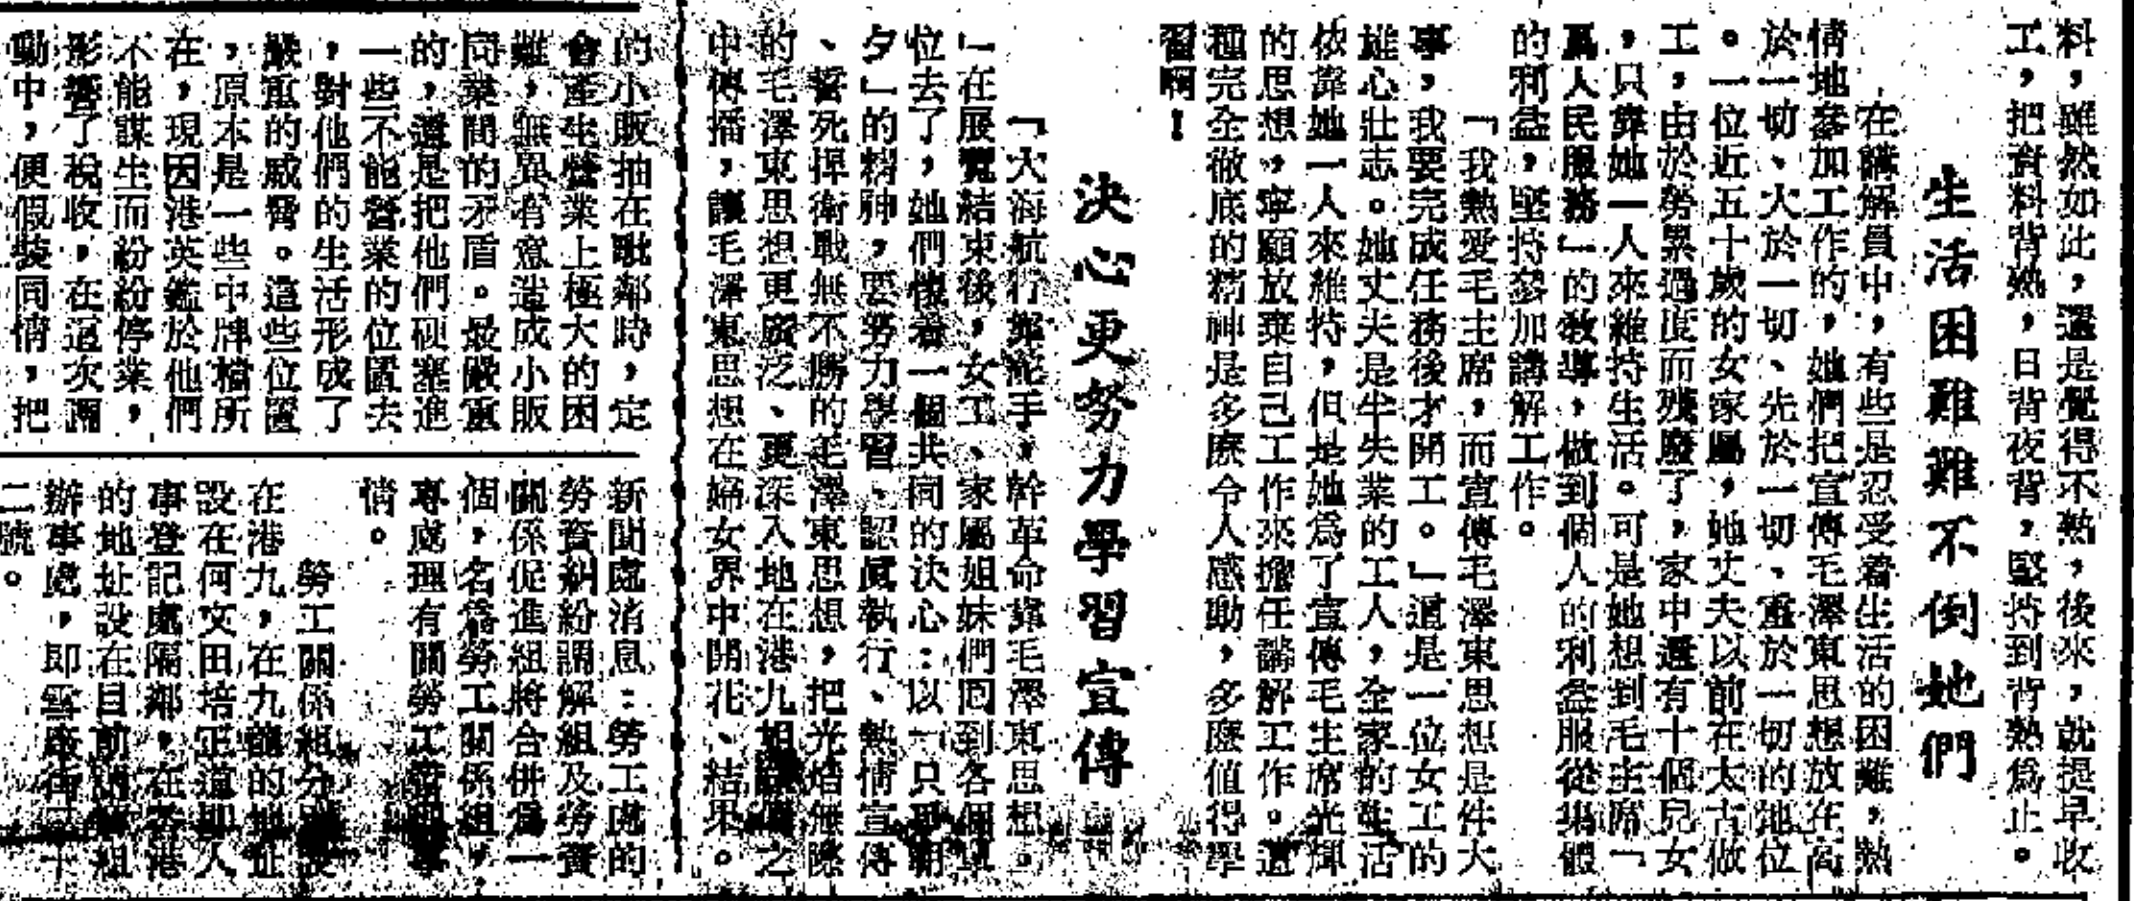 料，雖然如此，還是覺得不熟，後來，就提早收
工，把資料背熟，日背夜背，堅持到背熟爲止。
生活困難難不倒她們
在講解員中，有些是忍受着生活的困難，熱
情地參加工作的，她們把宣傳毛澤東思想放在高
於一切、大於一切、先於一切、重於一切的地位
。一位近五十歲的女家屬，她丈夫以前在太古做
工，由於勞累過度而殘廢了，家中還有十個兒女
，只靠她一人來維持生活。可是她想到毛主席「
爲人民服務」的教導，做到個人的利益服從集體
的利益，堅持參加講解工作。
「我熱愛毛主席，而宣傳毛澤東思想是件大
事，我要完成任務後才開工。」這是一位女工的
雄心壯志。她丈夫是半失業的工人，全家的生活
依靠她一人來維持，但是她爲了宣傳毛主席光輝
的思想，寧願放棄自己工作來擔任講解工作。這
種完全徹底的精神是多麽令人感動，多麽值得學
習啊！
決心更努力學習宣傳
「大海航行靠舵手，幹革命靠毛澤東思想。
」在展覽結束後，女工、家屬姐妹們回到各個單
位去了，她們懷着一個共同的決心：以「只爭朝
夕」的精神，要努力學習、認眞執行、熱情宣傳
、誓死捍衛戰無不勝的毛澤東思想，把光焰無際
的毛澤東思想更廣泛、更深入地在港九之
中傳播，讓毛澤東思想在婦女界中開花、結果。
的小販抽在毗鄰時，定
會產生營業上極大的困
難，無異有意造成小販
同業間的矛盾。最嚴重
的，還是把他們硬塞進
一些不能營業的位置去
，對他們的生活形成了
嚴重的威脅。這些位置
，原本是一些中牌檔所
在，現因港英鑑於他們
不能謀生而紛紛停業，
影響了稅收，在這次兩
動中，便假裝同情，把
新聞處消息：勞工處的
勞資糾紛調解組及勞資
關係促進組將合併爲一
個，名爲勞工關係組，
專處理有關勞工事
情。
勞工關係組分設
在港九，在九龍的地址
設在何文田培正道即人
事登記處隔鄰，在香港
的地址設在目前調解組
辦事處，即雪廠街二十
二號。